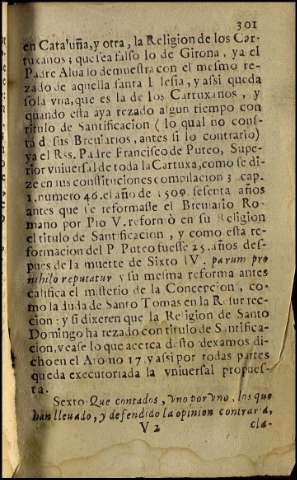 301
en Cataluña, y otra, la Religion de los Car-
tuxanos; que sea falso lo de Girona, ya el
Padre Alua lo demuestra con el mesmo re-
zado de aquella santa Iglesia, y assi queda
sola vna, que es la de los Cartuxanos, y
quando esta aya rezado algun tiempo con
titulo de Santificacion (lo qual no cons-
ta de sus Breuiarios, antes si lo contrario)
ya el Res. Padre Francisco de Puteo, Supe-
rior vniuersal de toda la Cartuxa, como se di-
ze en sus constituciones compilacion 3. cap.
1. numero 46. el año de 1509. sesenta años
antes que se reformasse el Breuiario Ro-
mano por Pio V. reformò en su Religion
el titulo de Santificacion, y como esta re-
formacion del P. Puteo fuesse 25. años des-
pues de la muerte de Sixto IV. parum pro
nihilo reputatur y su mesma reforma antes
califica el misterio de la Concepcion, co-
mo la duda de Santo Tomas en la Resurrec-
cion: y si dixeren que la Religion de Santo
Domingo ha rezado con titulo de Santifica-
cion, vease lo que acerca desto dexamos di-
cho en el Aro no 17. y assi por todas partes
queda executoriada la vniuersal propues-
ta.
Sexto Que contados, vno por vno, los que
han lleuado, y defendido la opinion contraria,
V 2 cla-